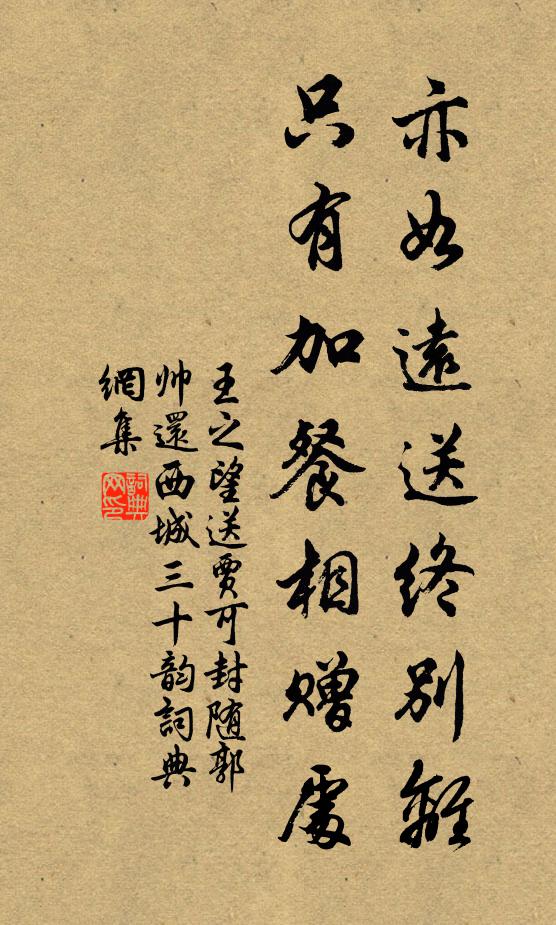 亦如遠送終別離
只有加餐相贈處
王之望送賈可封随郭
帅還西城三十韵詞典
網集
詞典网印